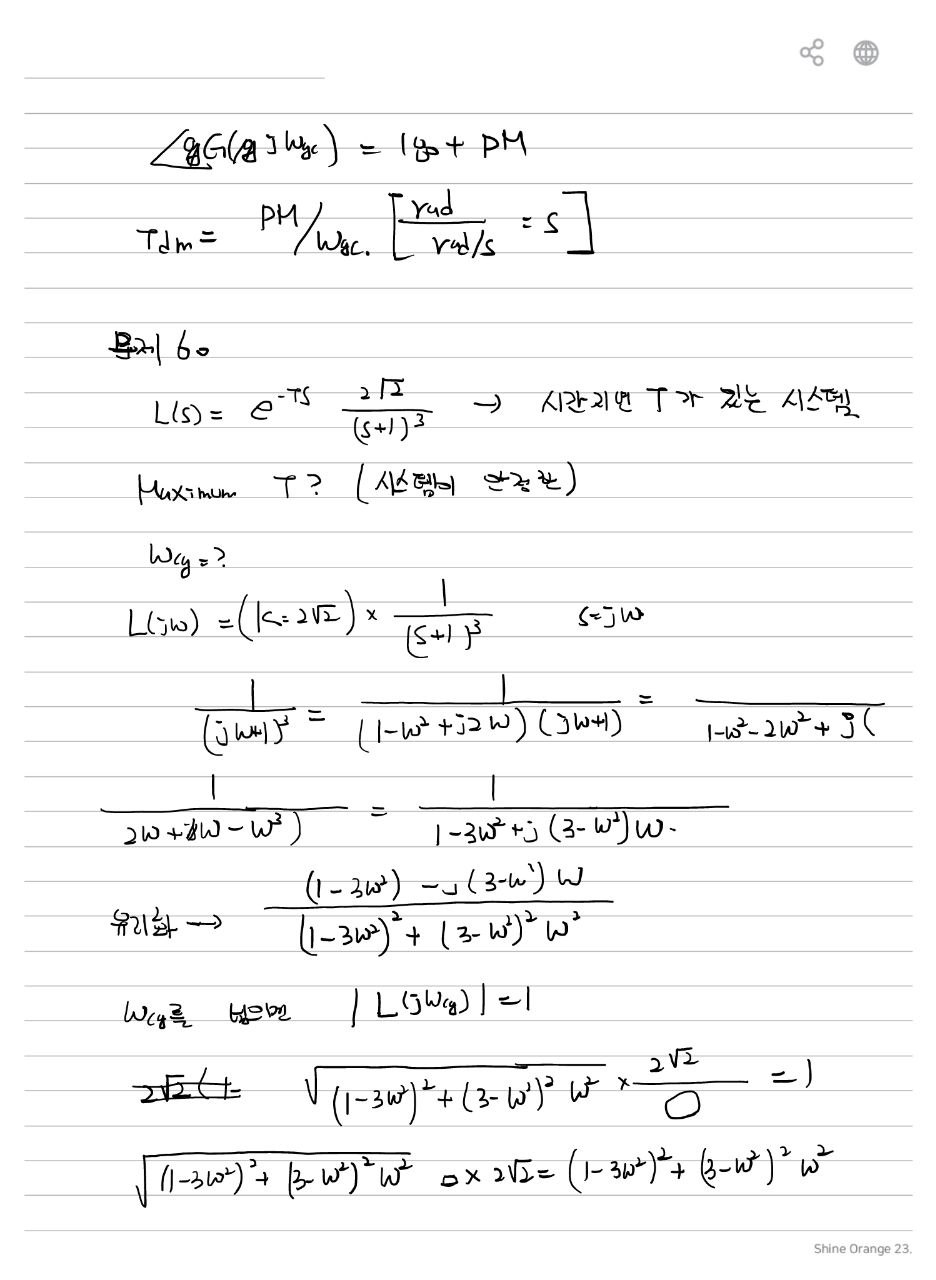 ∠gG(jω_gc) = 180 + PM
T_dm = PM/ω_gc. [rad / rad/s = s]
문제 60
L(s) = e^{-Ts} 2√2/(s+1)^3 → 시간지연 T가 있는 시스템
Maximum T? (시스템이 안정한)
ω_cg = ?
L(jω) = (K=2√2) × 1/(s+1)^3 s=jω
1/(jω+1)^3 = 1/((1-ω^2+j2ω)(jω+1)) = /(1-ω^2-2ω^2+j(
1/(2ω+ω-ω^3) = 1/(1-3ω^2+j(3-ω^2)ω.
유리화 → ((1-3ω^2) -j(3-ω^2)ω)/((1-3ω^2)^2+(3-ω^2)^2ω^2)
ω_cg를 넣으면 |L(jω_cg)|=1
√((1-3ω^2)^2+(3-ω^2)^2ω^2) × 2√2/○ = 1
√((1-3ω^2)^2+(3-ω^2)^2ω^2) × 2√2 = (1-3ω^2)^2+(3-ω^2)^2ω^2
Shine Orange 23.